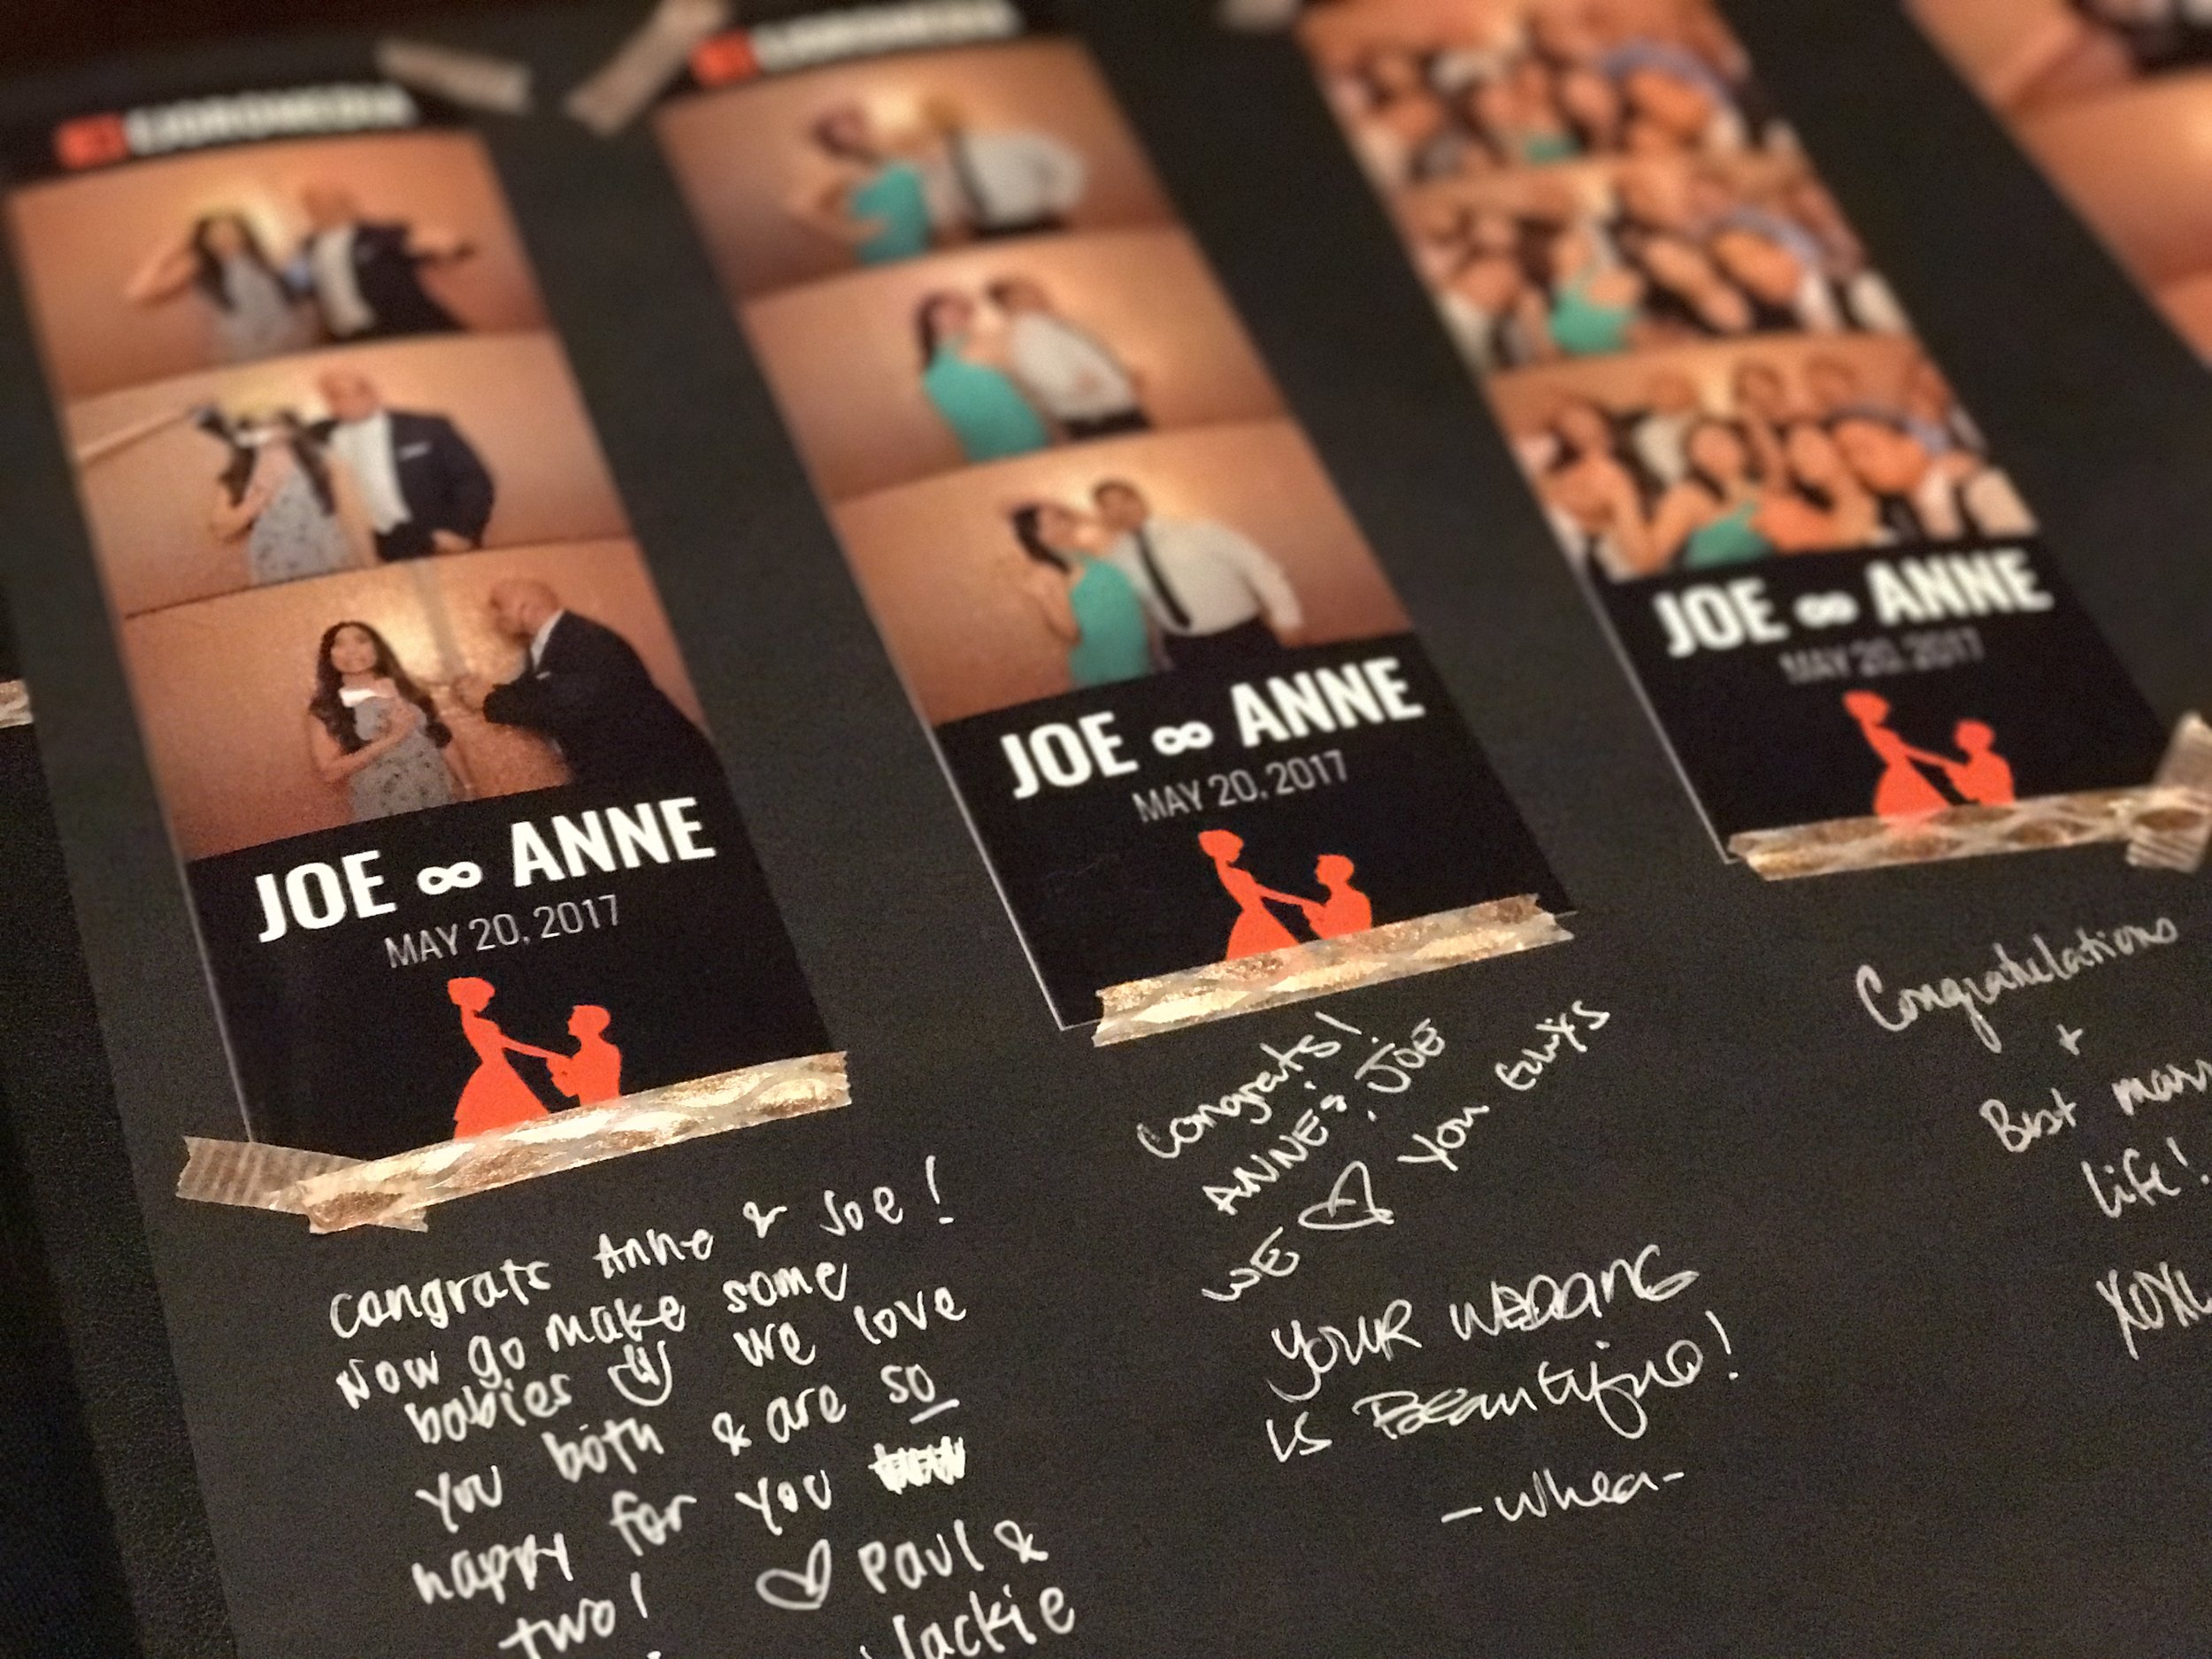 JOE ∞ ANNE
MAY 20, 2017
Congrats Anne & Joe!
Now go make some
babies we love
you both & are so
happy for you
two! ♡ Paul &
Jackie
JOE ∞ ANNE
MAY 20, 2017
Congrats!
ANNE & JOE
WE ♡ you Guys
YOUR WEDDING
is Beautiful!
- Whea -
JOE ∞ ANNE
MAY 20, 2017
Congratulations
+
Best
life!